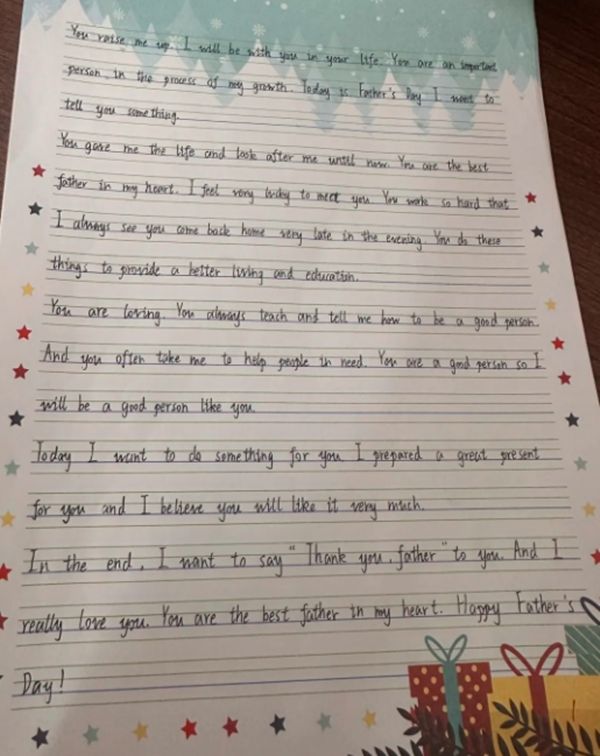 You raise me up. I will be with you in your life. You are an important
person in the process of my growth. Today is Father's Day I want to
tell you something.
You gave me the life and look after me until now. You are the best
father in my heart. I feel very lucky to meet you You work so hard that
I always see you come back home very late in the evening. You do these
things to provide a better living and education.
You are loving. You always teach and tell me how to be a good person.
And you often take me to help people in need. You are a good person so I
will be a good person like you.
Today I want to do something for you I prepared a great present
for you and I believe you will like it very much.
In the end, I want to say "Thank you, father" to you. And I
really love you. You are the best father in my heart. Happy Father's
Day!